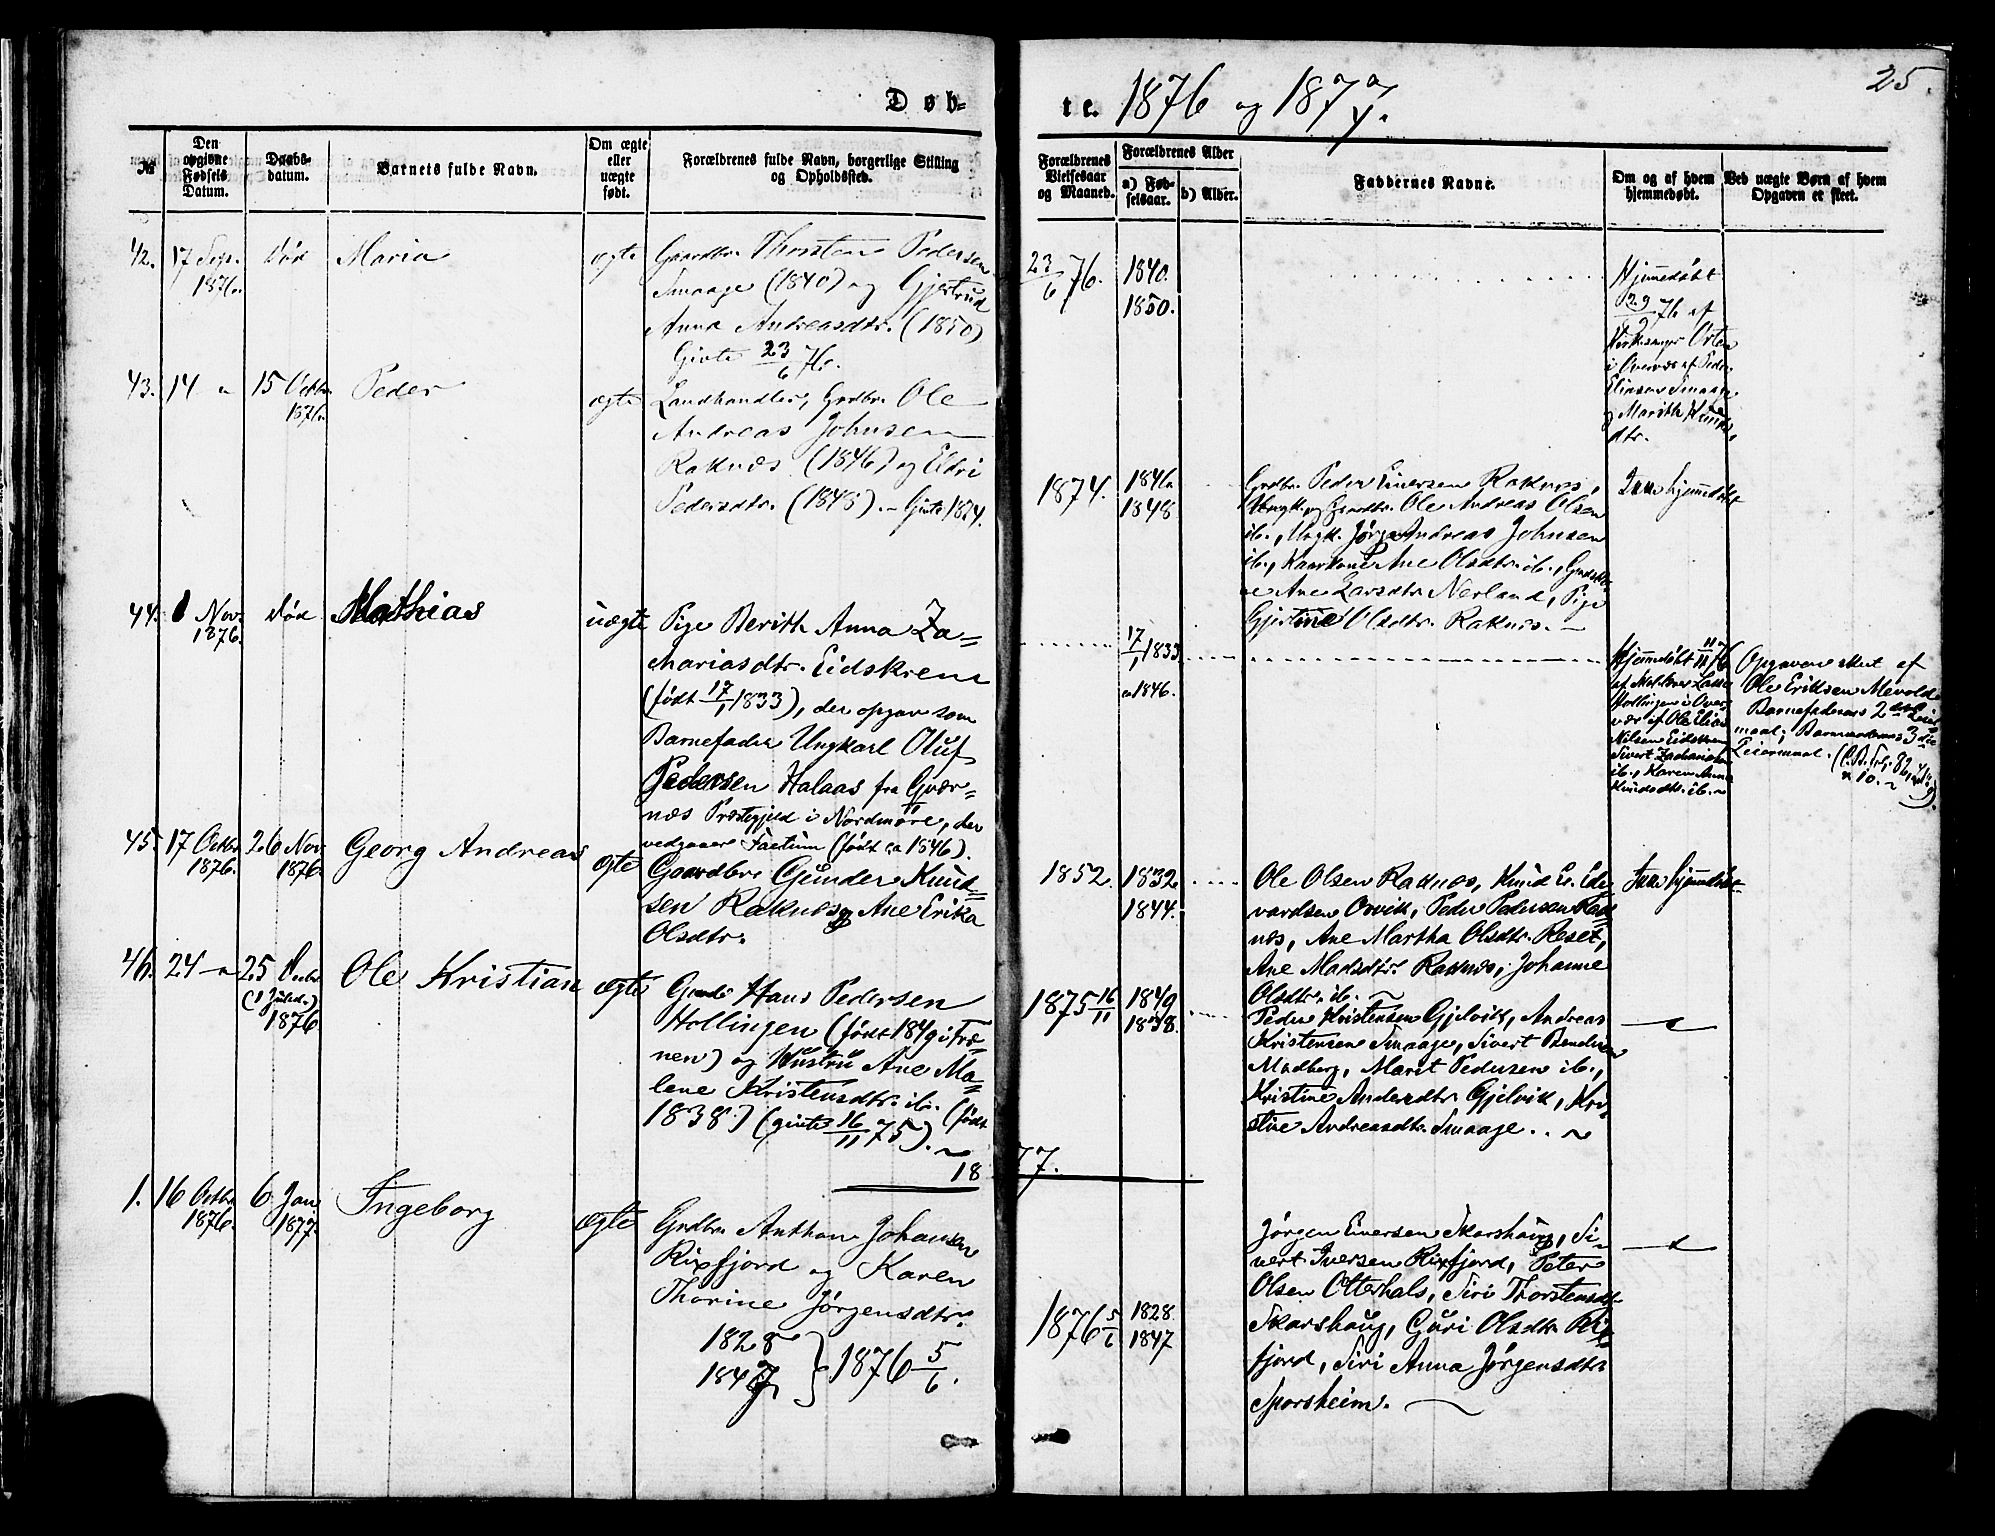 Døb-
te. 1876 og 1877.
25.
No
Den opgivne Fødsels Datum.
Daabs-datum.
Barnets fulde Navn.
Om ægte eller uægte født.
Forældrenes fulde Navn, borgerlige Stilling og Opholdssted.
Forældrenes Vielsesaar og Maaned.
Forældrenes Alder
a) Fød-selsaar.
b) Alder.
Faddernes Navne.
Om og af hvem hjemmedøbt.
Ved uægte Børn af hvem Opgaven er skeet.
42. 17 Sept. 1876. død Maria ægte Gaardbr. Thorsten Pedersen
Smaage (1840) og Gjertrud
Anna Andreasdtr. (1850)
Givte 23/6 76.
23/6 76. 1840.
1850.
Hjemmedøbt
29/9 76 af
Kirkesanger Orten
i Overvær af Peder
Eliasen Smaage
og Marith
dtr.
43. 14 — " 15 Octbr. 1876. Peder ægte Landhandler, Grdbr. Ole
Andreas Johnsen
Raknæs (1846) og Eldri
Pedersdtr. (1848). – Givte 1874.
1874. 1846.
1848
Grdbr. Peder Einersen Raknæs,
Ungk. og Grdbr. Ole Andreas Olsen
ib., Ungk. Jørgen Andreas Johnsen
ib., Kaarkone Ane Olsdtr. ib., Grdsko-
ne Ane Larsdtr. Nerland, Pige
Gjertine Olsdtr. Raknæs. –
Ikke hjemmedøbt
44. 1 Nov. 1876. død Mathias uægte Pige Berith Anna Za=
mariasdtr. Eidskrem
(født 17/1 1833), der opgav som
Barnefader Ungkarl Oluf
Pedersen Halaas fra Qvær=
næs Præstegjeld i Nordmøre, der
vedgaaer Factum (født ca 1846).
17/1 1833
ca 1846.
Hjemmedøbt 11/11 76
af
Hollingen i Over-
vær af Ole Elias
Nilsen Eidskrem
Sivert Zachariasen
ib., Karen Anna
Knudsdtr. ib. ~
Opgaven skeet af
Ole Eriksen Mevold
Barnefaderens 2det Leier
maal; Barnemoderens 3die
Leiermaal.
45. 17 Octbr. 1876. 26 Nov. 1876. Georg Andreas ægte Gaardbr. Gunder Knud=
sen Raknæs og Ane Erika
Olsdtr.
1852. 1832
1844.
Ole Olsen Raknæs, Knud Ed-
vardsen Orvik, Peder Pedersen Rak=
næs, Ane Martha Olsdtr. Reset,
Ane Madsdtr. Raknæs, Johanne
Olsdtr. ib. ~
Ikke hjemmedøbt
46. 24 — " 25 Decbr. (1 Juled.) 1876 Ole Kristian ægte Grdbr. Hans Pedersen
Hollingen (født 1849 i Fræ-
nen) og Hustru Ane Ma=
lene Kristensdtr. ib. (født
1838.) (givte 16/11 75). ~
1875 16/11 1849
1838.
Peder Kristensen Gjelvik, Andreas
Kristensen Smaage, Sivert Bendixen
Malberg, Marit Pedersen ib.,
Kristine Andersdtr. Gjelvik, Kri-
stine Andreasdtr. Smaage. . ~
1877.
1. 16 Octbr. 1876. 6 Jan. 1877. Ingeborg ægte Grdbr. Anthon Johansen
Rixfjord og Karen
Thorine Jørgensdtr.
1828
1847 } 1876 5/6.
1876 5/6 1828
1847
Jørgen Einersen Skarshaug, Si-
vert Iversen Rixfjord, Peter
Olsen Otterhals, Siri Thorstensdtr.
Skarshaug, Guri Olsdtr. Rix-
fjord, Siri Anna Jørgensdtr.
Sporsheim. ~